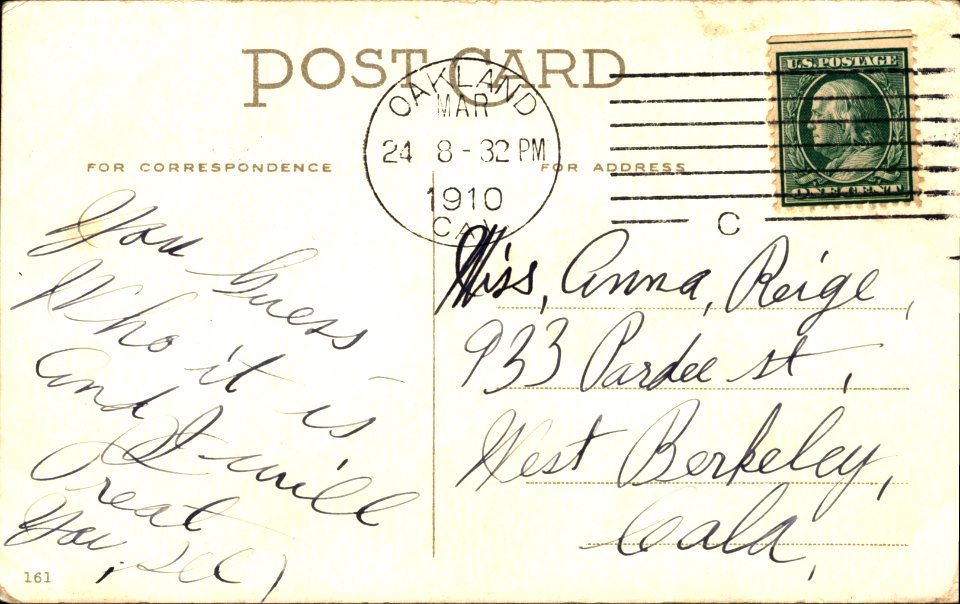 POST CARD
OAKLAND
MAR
24 8-32 PM
1910
CAL
U.S. POSTAGE
ONE CENT
C
FOR CORRESPONDENCE
FOR ADDRESS
You Guess
Who it is
and I will
Treat
You, see)
Miss, Anna, Reige,
933 Pardee st,
West Berkeley,
Cala,
161